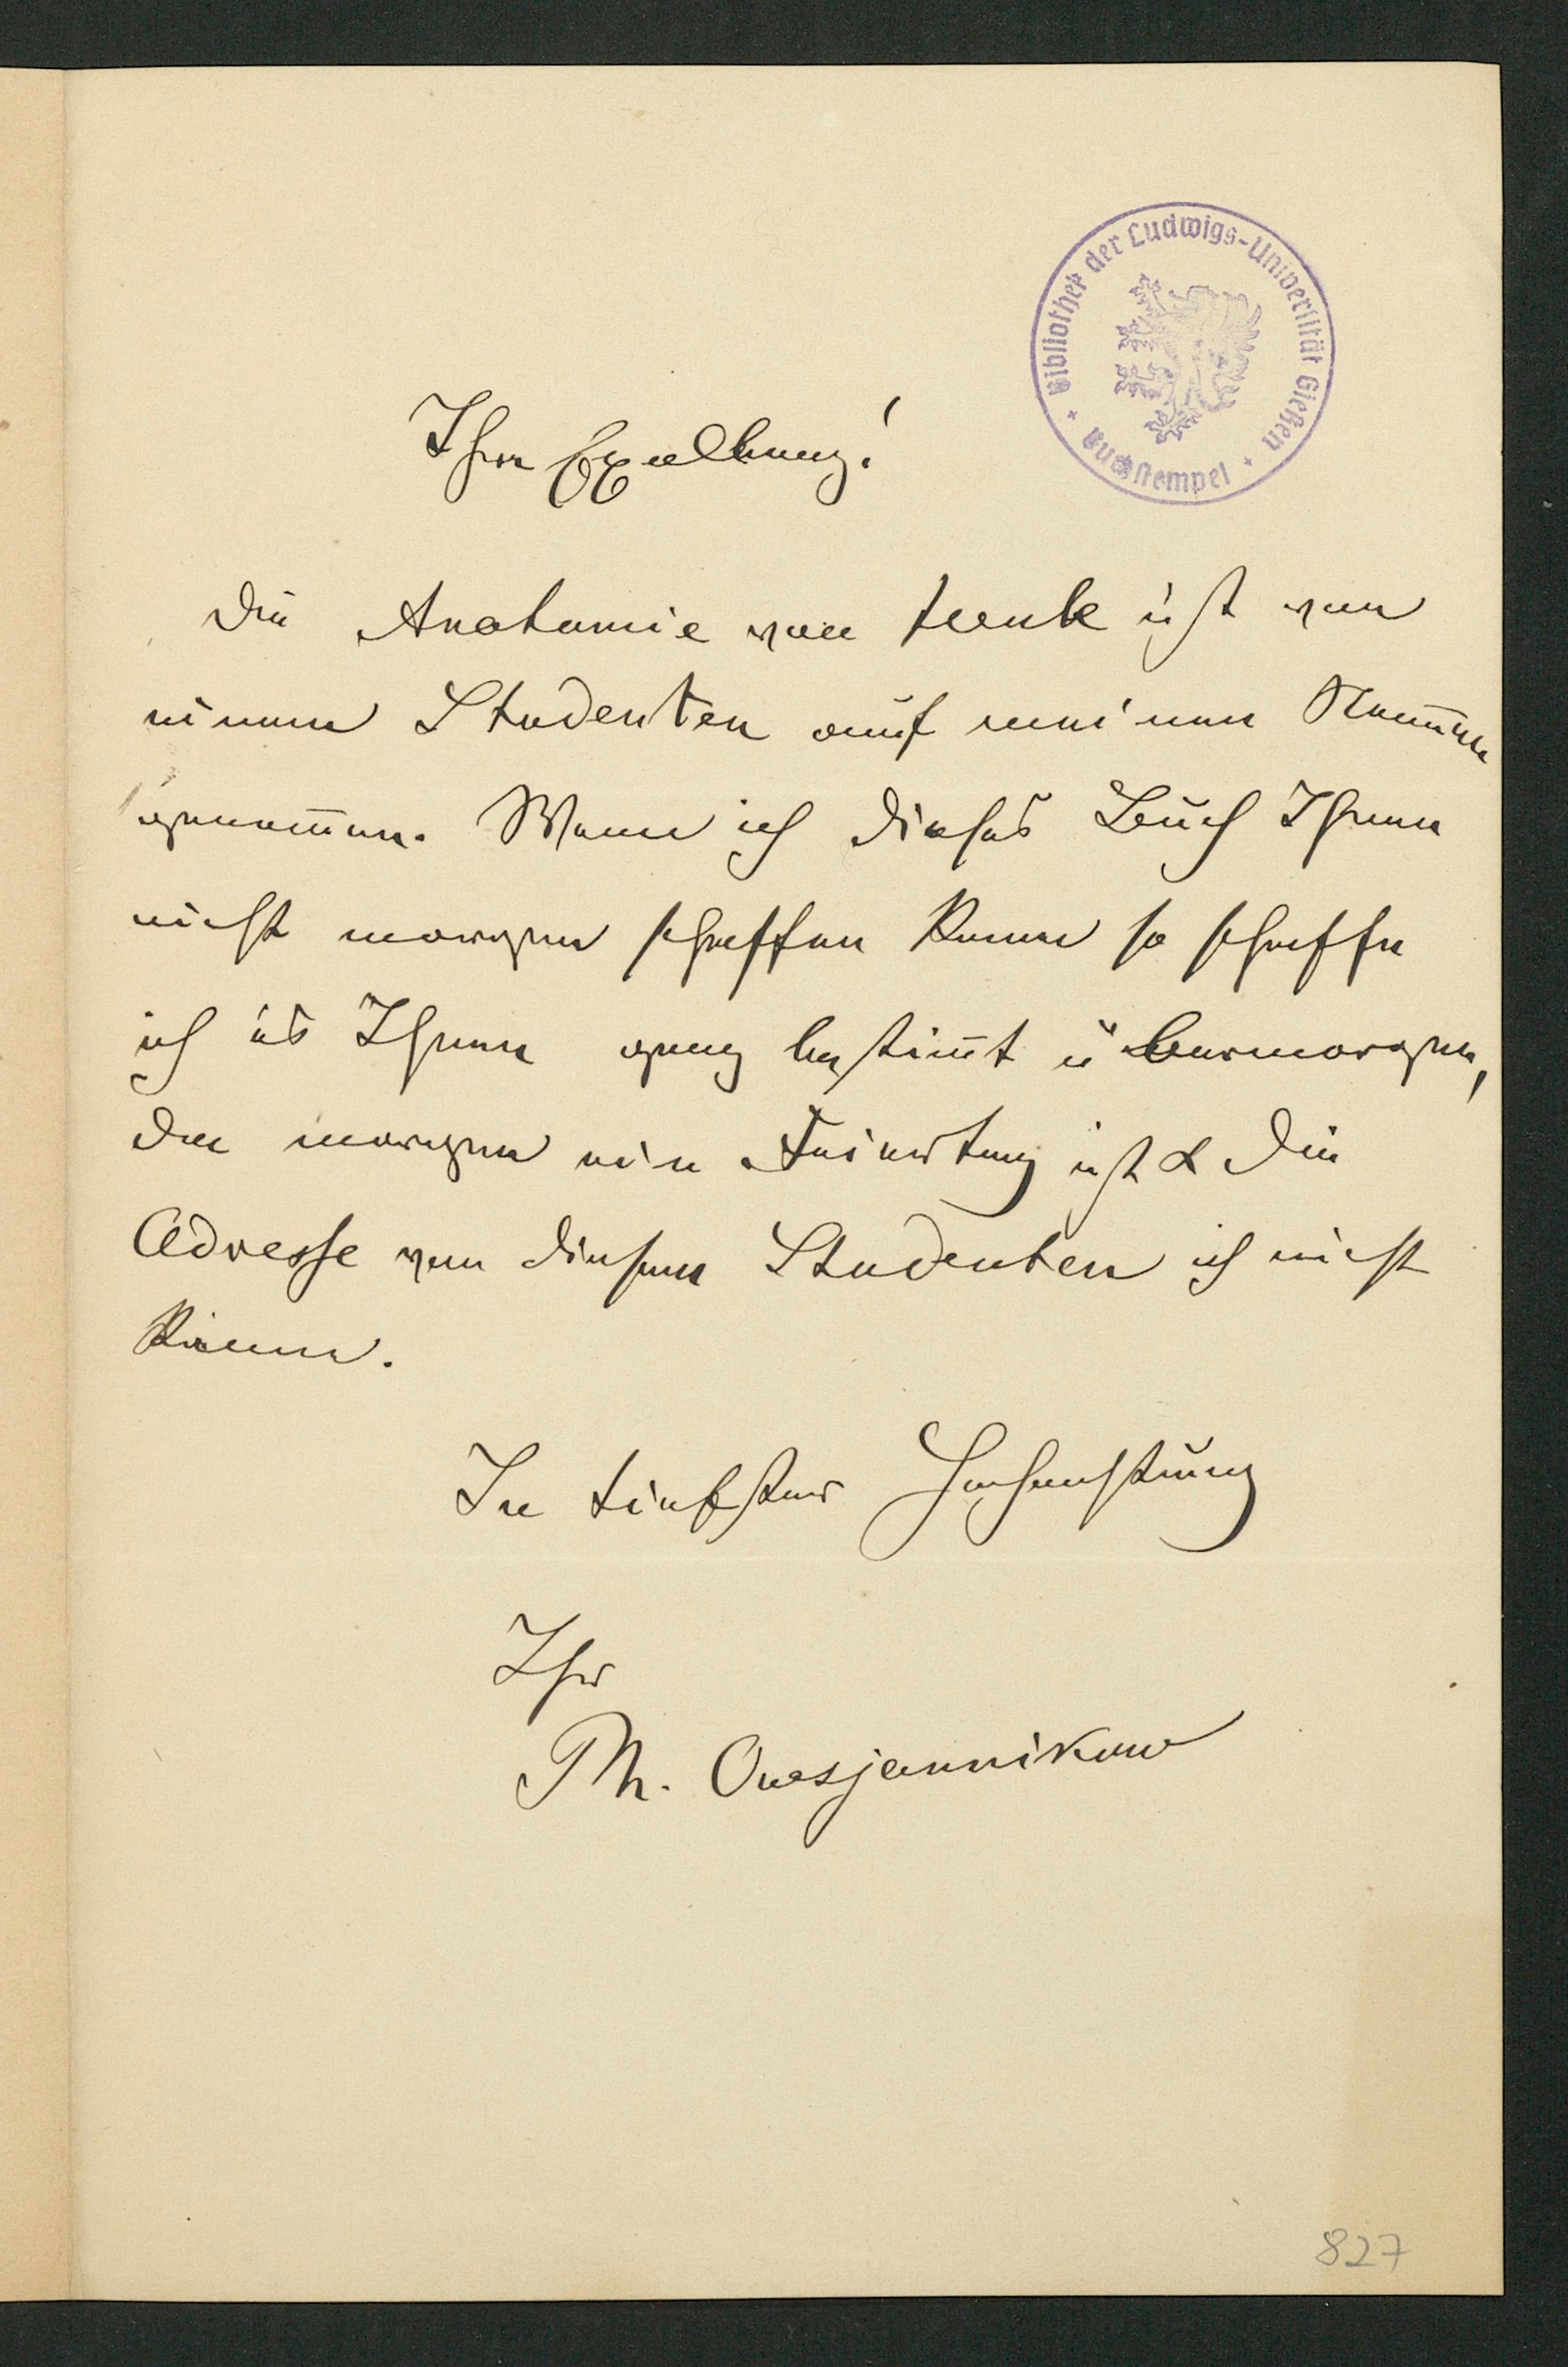 Bibliothek der Ludwigs-Universität Gießen
Buchstempel
Ihre Excellenz!
Die Anatomie von Henle ist von
einem Studenten auf meinen Namen
genom̄en. Wenn ich dieses Buch Ihnen
nicht morgen schaffen kann so schaffe
ich es Ihnen ganz bestim̄t übermorgen,
da morgen ein Feiertag ist & die
Adresse von diesem Studenten ich nicht
kenne.
In tiefster Hochachtung
Ihr
Ph. Owsjannikow
827